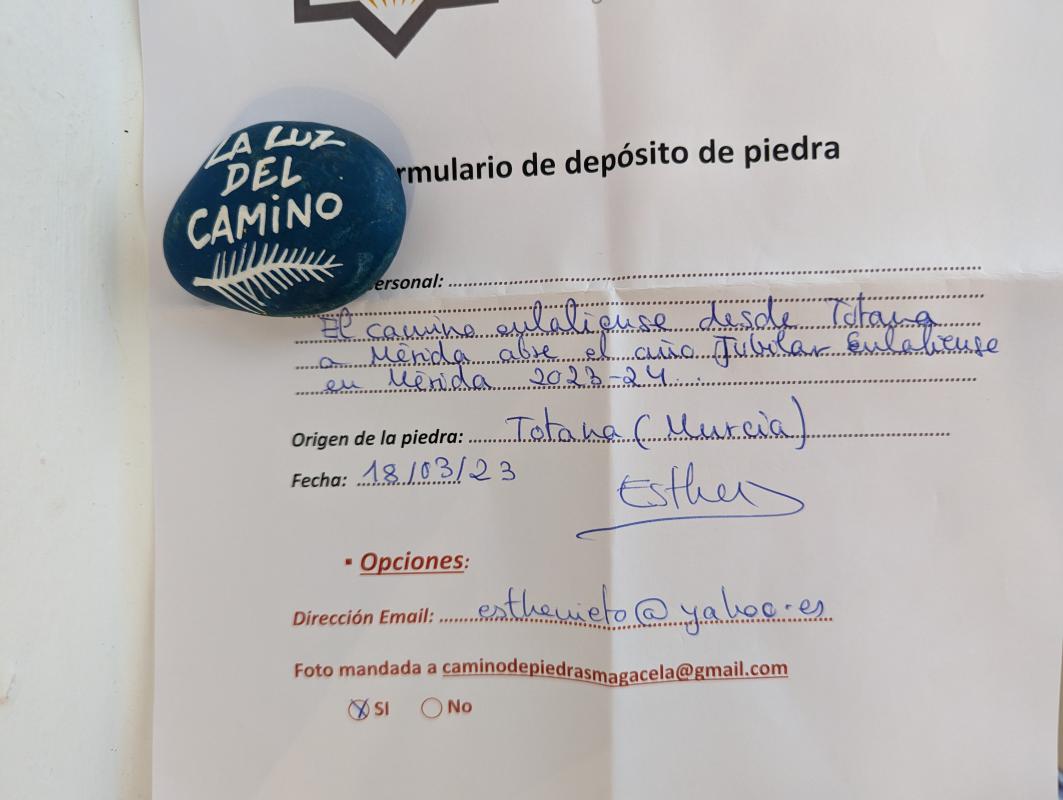 LA LUZ
DEL
CAMINO
rmulario de depósito de piedra
ersonal:
El camino eulaliense desde Totana
a Mérida abre el año Jubilar Eulaliense
en Mérida 2023-24.
Origen de la piedra: Totana (Murcia)
Fecha: 18/03/23
Esther
▪ Opciones:
Dirección Email: esthernieto@yahoo.es
Foto mandada a caminodepiedrasmagacela@gmail.com
SI No